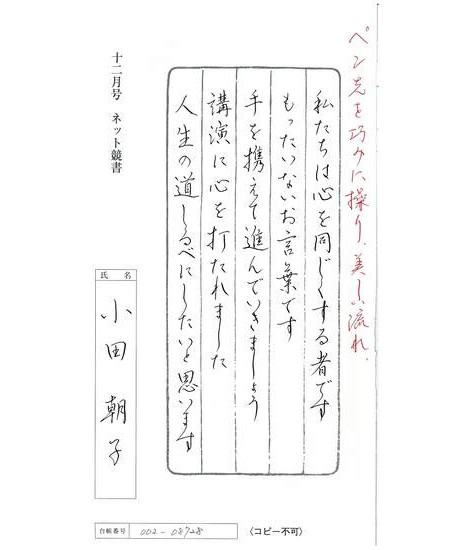 ペン先を巧みに操り、美しい流れ。
私たちは心を同じくする者です
もったいないお言葉です
手を携えて進んでいきましょう
講演に心を打たれました
人生の道しるべにしたいと思います
十二月号 ネット競書
氏名
小田朝子
台帳番号 002-08728
〈コピー不可〉